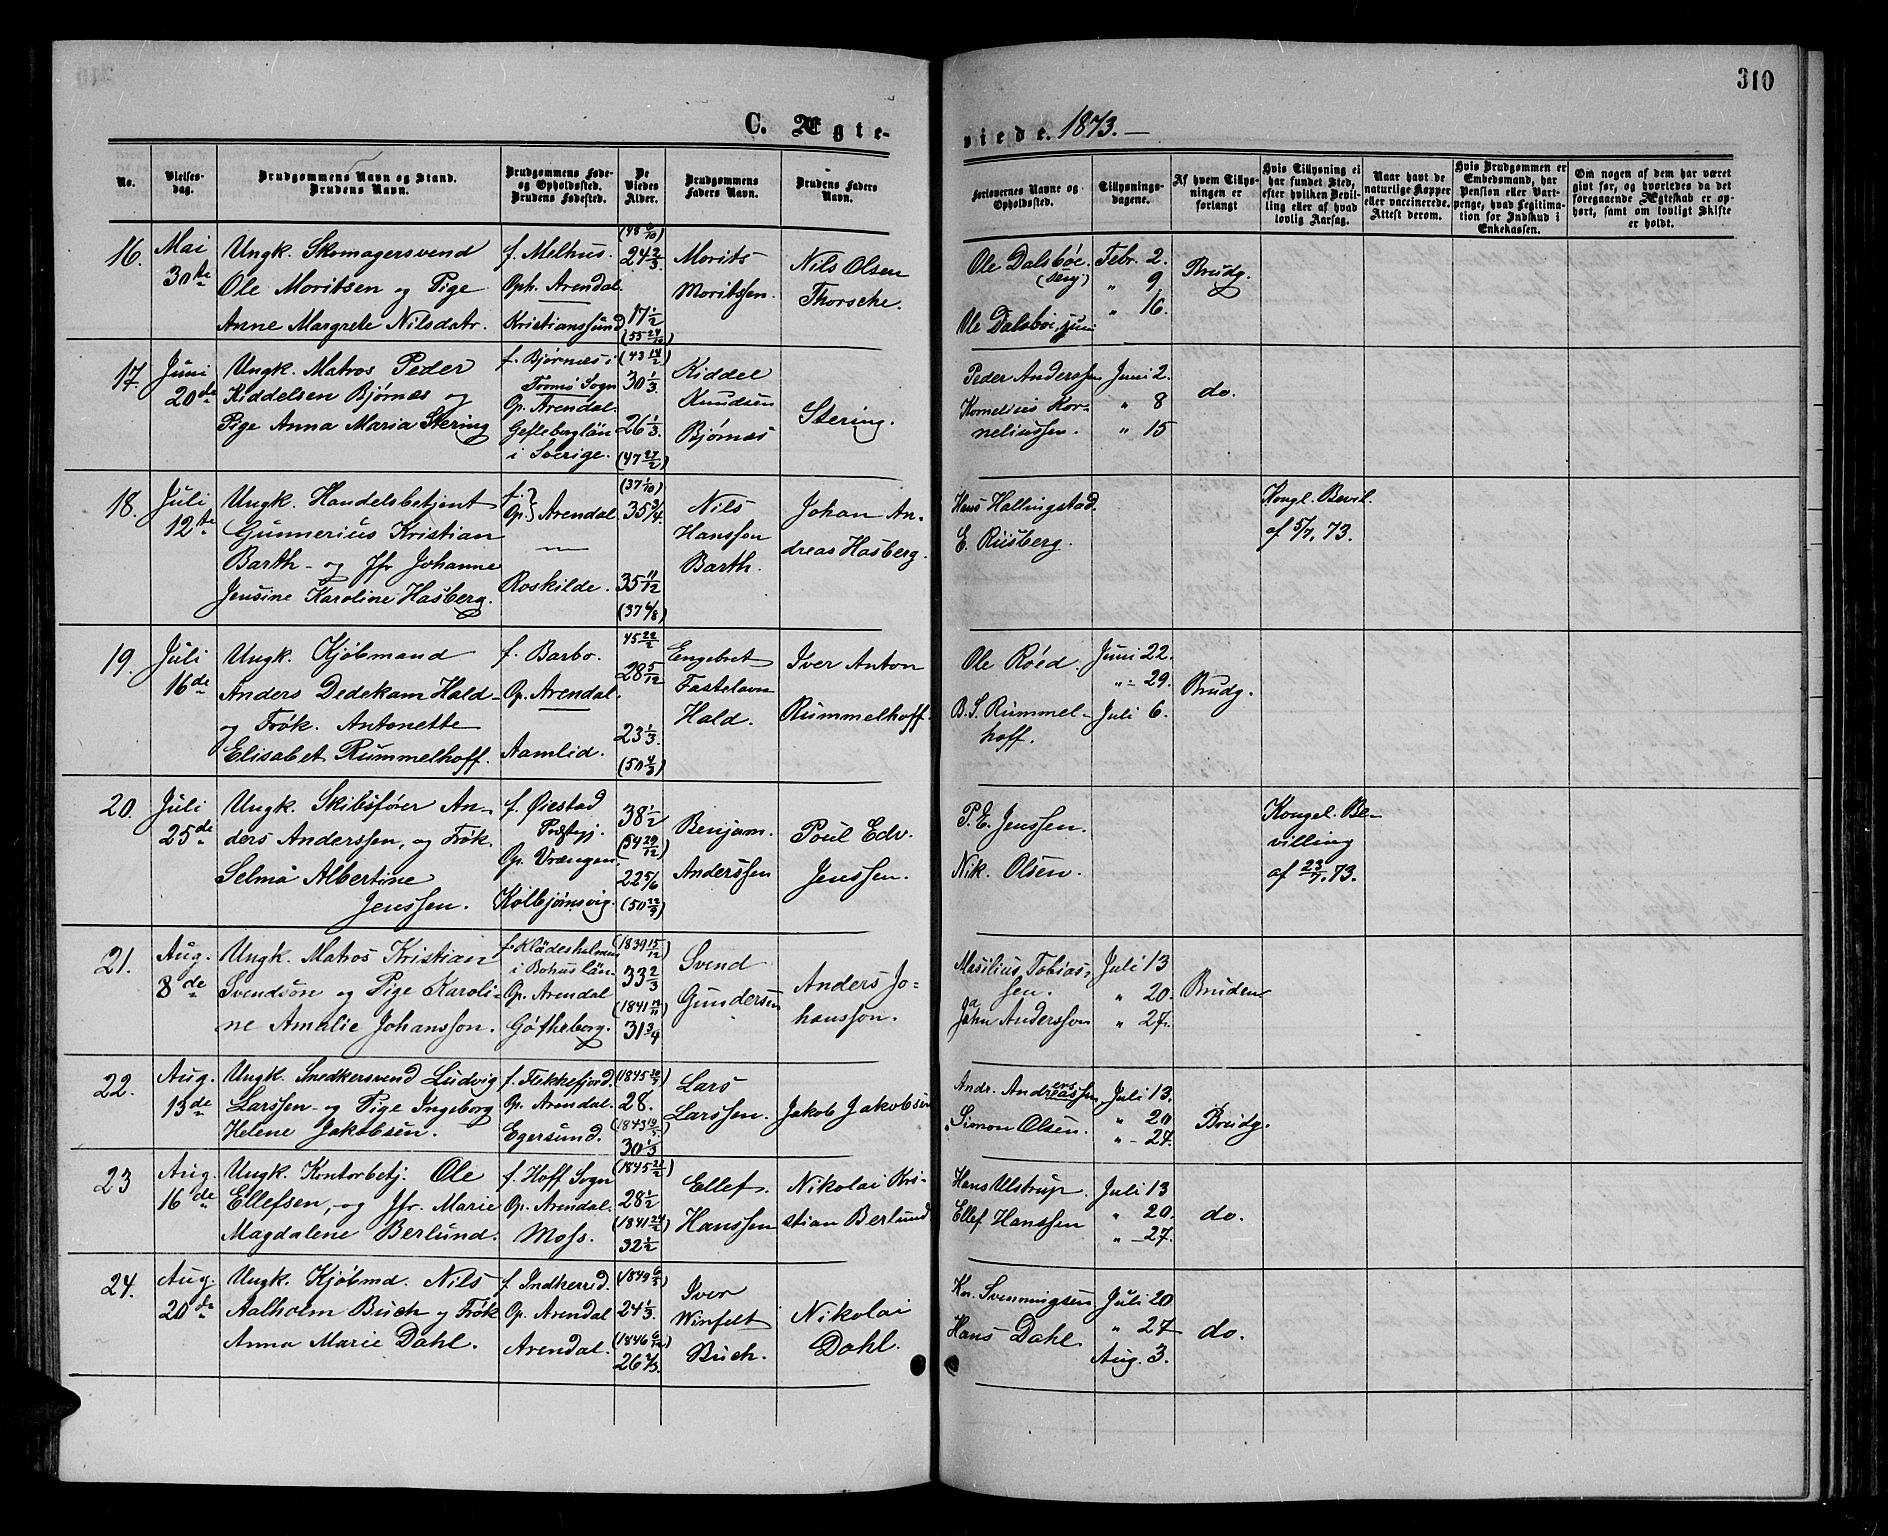 310
C. Ægte-
viede. 1873.
No.
Vielses-
dag.
Brudgommens Navn og Stand.
Brudens Navn.
Brudgommens Føde-
og Opholdssted.
Brudens Fødested.
De
Viedes
Alder.
Brudgommens
Faders Navn.
Brudens Faders
Navn.
Forlovernes Navne og
Opholdssted.
Tillysnings-
dagene.
Af hvem Tillys-
ningen er
forlangt
Hvis Tillysning ei
har fundet Sted,
efter hvilken Bevil-
ling eller af hvad
lovlig Aarsag.
Naar havt de
naturlige Kopper
eller vaccinerede.
Attest derom.
Hvis Brudgommen er
Embedsmand, har
Pension eller Vart-
penge, hvad Legitima-
tion for Indskud i
Enkekassen.
Om nogen af dem har været
gift før, og hvorledes da det
foregaaende Ægteskab er op-
hørt, samt om lovligt Skifte
er holdt.
16.
Mai
30te
Ungk. Skomagersvend
Ole Moritsen og Pige
Anne Margrete Nilsdatr.
f. Melhus.
Oph. Arendal.
Kristianssund
24 2/3
17 1/2
Morits
Moritssen.
Nils Olsen
Thorsche.
Ole Dalsbøe.
(sen)
Ole Dalsbøe, jun
Febr. 2.
" 9
" 16.
Brudg.
17.
Juni
20de
Ungk. Matros Peder
Kiddelsen Bjørnæs og
Pige Anna Maria Stering
f. Bjørnæs i
Tromø Sogn
Op. Arendal.
Gefleborglän
i Sverige.
(43 14/2)
30 1/3
26 1/3.
(47 27/2)
Kiddel
Knudsen
Bjørnæs
Stering.
Peder Anderssen
Kornelius Kor-
neliussen.
Juni 2.
" 8
" 15
do.
18.
Juli
12te
Ungk. Handelsbetjent
Gunnerius Kristian
Barth - og Jfr Johanne
Jensine Karoline Hasberg.
f. }
Op. } Arendal
Roskilde.
(37 1/10)
35 3/4
35 11/12
(37 6/8)
Nils
Hanssen
Barth.
Johan An-
dreas Hasberg.
Hans Hallingstad.
E. Riisberg.
Kongl. Bevil.
af 5/7. 73.
19.
Juli
16de
Ungk. Kjøbmand
Anders Dedekam Hald-
og Frøk. Antonette
Elisabet Rummelhoff.
f. Barbo.
Op. Arendal.
Aamlid.
45 22/2
28 5/12
23 1/3.
(50 4/3)
Engebret
Fastelavn
Hald.
Iver Anton
Rummelhoff.
Ole Röed.
B. S. Rummel-
hoff.
Juni 22.
" 29.
Juli 6.
Brudg.
20.
Juli
25de
Ungk. Skibsfører An-
ders Anderssen, og Frøk.
Selma Albertine
Jenssen.
f. Øiestad
Præstegj.
Op. Vrængen.
Kolbjørnsvig.
38 1/2
(34 29/12)
22 5/6
(50 22/9)
Benjam.
Anderssen
Poul Edv.
Jenssen.
P. E. Jenssen.
Nik. Olsen.
Kongel. Be-
villing
af 23/7. 73.
21.
Aug.
8de
Ungk. Matros Kristian
Svendson og Pige Karoli-
ne Amalie Johansson.
f. Klädesholmen
i Bohuslän
Op. Arendal
Götheborg.
(1839 15/12)
33 2/3
31 3/4
Svend
Gundersen
Anders Jo-
hansson.
Masilius Tobias-
sen.
John Andersson
Juli 13
" 20.
" 27.
Bruden
22.
Aug.
13de
Ungk. Snedkersvend Ludvig
Larssen - og Pige Ingeborg
Helene Jakobsen.
f. Flekkefjord.
Op. Arendal.
Egersund.
28.
30 1/3
Lars
Larssen.
Jakob Jakobsen
Andr. Andreassen
Simon Olsen.
Juli 13.
" 20
" - 27.
Brudg.
23
Aug.
16de
Ungk. Kontorbetj. Ole
Ellefsen, - og Jfr. Marie
Magdalene Berlund.
f. Hoff Sogn
Op. Arendal.
Moss.
28 1/2
(1841 24/2)
32 1/2
Ellef.
Hanssen
Nikolai Kri-
stian Berlund
Hans Ulstrup.
Ellef Hanssen
Juli 13
" 20.
" - 27.
do.
24.
Aug.
20de
Ungk. Kjøbmd. Nils
Aalholm Buch og Frøk
Anna Marie Dahl.
f. Indherred.
Op. Arendal
Arendal.
(1849 6/3)
24 1/3.
(1846 6/12)
26 2/3.
Iver
Winfelt
Buch.
Nikolai
Dahl.
Kr. Svenningsen
Hans Dahl.
Juli 20
" 27
Aug. 3.
do.